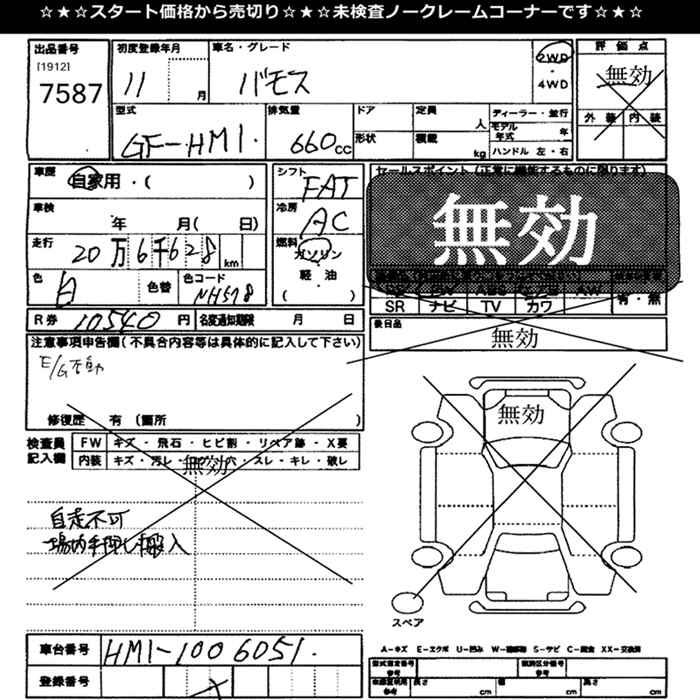 ☆★☆★スタート価格から売切り☆★☆★未検査ノークレームコーナーです☆★☆
出品番号
[1912]
7587
初度登録年月
11 月
車名・グレード
バモス
2WD
4WD
評価点
無効
外装 内装
型式
GF-HM1
排気量
660cc
ドア
形状
定員 人
積載 kg
ディーラー・並行
モデル年式 年
ハンドル 左・右
車歴
自家用・( )
車検
年 月( 日)
走行
20万6千628 km
色
白
色替
色コード
NH578
シフト
FAT
冷房
AC
燃料
ガソリン
軽・油
( )
セールスポイント(正常に機能するものに限ります)
無効
SR ナビ TV カワ
有・無
後日品
無効
R券 10540 円
名変通知期限 月 日
注意事項申告欄(不具合内容等は具体的に記入して下さい)
E/G不動
修復歴 有(箇所 )
検査員記入欄
FW キズ・飛石・ヒビ割・リペア跡・X要
内装 キズ・汚レ・ ・穴・スレ・キレ・破レ
無効
自走不可
場内手押し搬入
無効
スペア
車台番号
HM1-1006051
登録番号
A-キズ E-エクボ U-凹み S-サビ C-腐食 XX-交換済
型式指定番号
参考
類別区分番号
参考
長さ cm
幅 cm
高さ cm